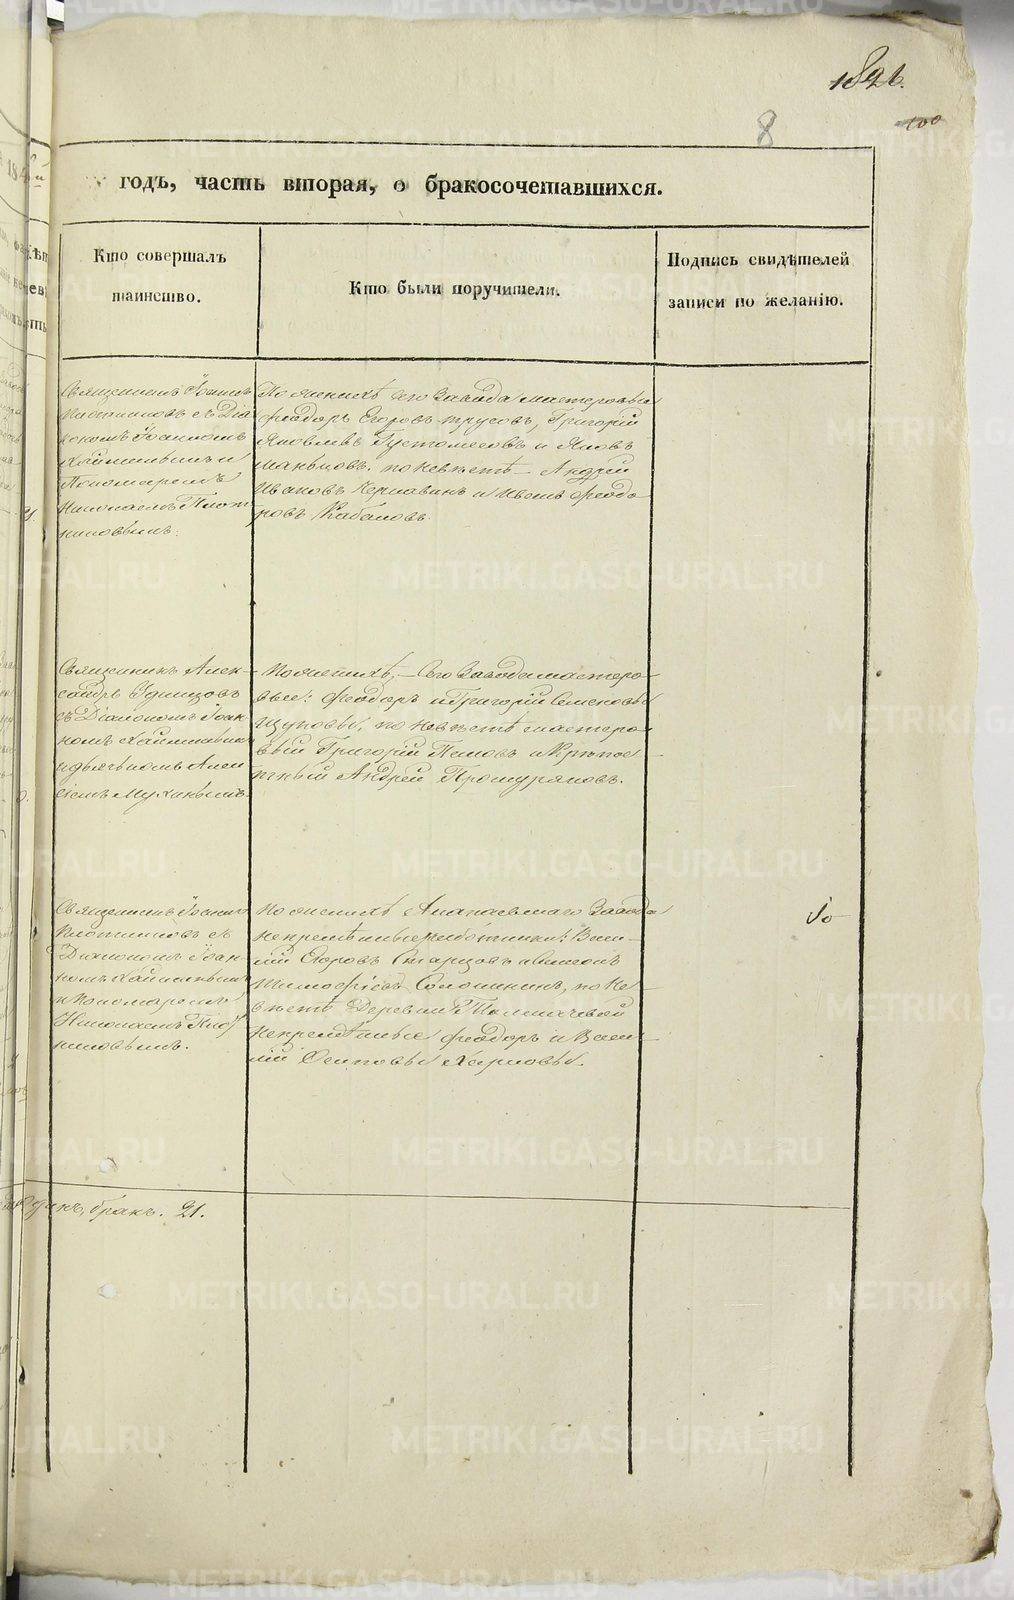 100
8
годъ, часть вторая, о бракосочетавшихся.
Кто совершалъ
таинство.
Кто были поручители.
Подпись свидѣтелей
записи по желанію.
Священникъ Іоаннъ
Плотниковъ съ Діа
кономъ Іоанномъ
и
Пономаремъ
Николаемъ Плот
никовымъ.
По женихѣ сего Завода мастеровые
Феодоръ Егоровъ Трусовъ, Григорій
Яковлевъ Густомесовъ и Яковъ
по невѣстѣ Андрей
Ивановъ Чернавинъ и Иванъ Феодо
ровъ Кабаковъ.
Священникъ Алек
сандръ Удинцовъ
съ Діакономъ Іоан
номъ
и дьячкомъ Алек
сіемъ Мухинымъ.
По женихѣ, Сего Завода мастеро
вые: Феодоръ и Григорій Семеновы
Щуповы, по невѣстѣ мастеро
вый Григорій и
Андрей Проскуряковъ.
Священникъ Іоаннъ
Плотниковъ съ
Діакономъ Іоан
номъ
и Пономаремъ
Николаемъ Плот
никовымъ.
По женихѣ Алапаевскаго Завода
непремѣнные работники: Васи
лій Егоровъ Старцовъ и Симеонъ
Тимофѣевъ по не
вѣстѣ Деревни Толмачевой
непремѣнные Феодоръ и Васи
лій Осиповы Карповы.
бракъ. 21.
METRIKI.GASO-URAL.RU